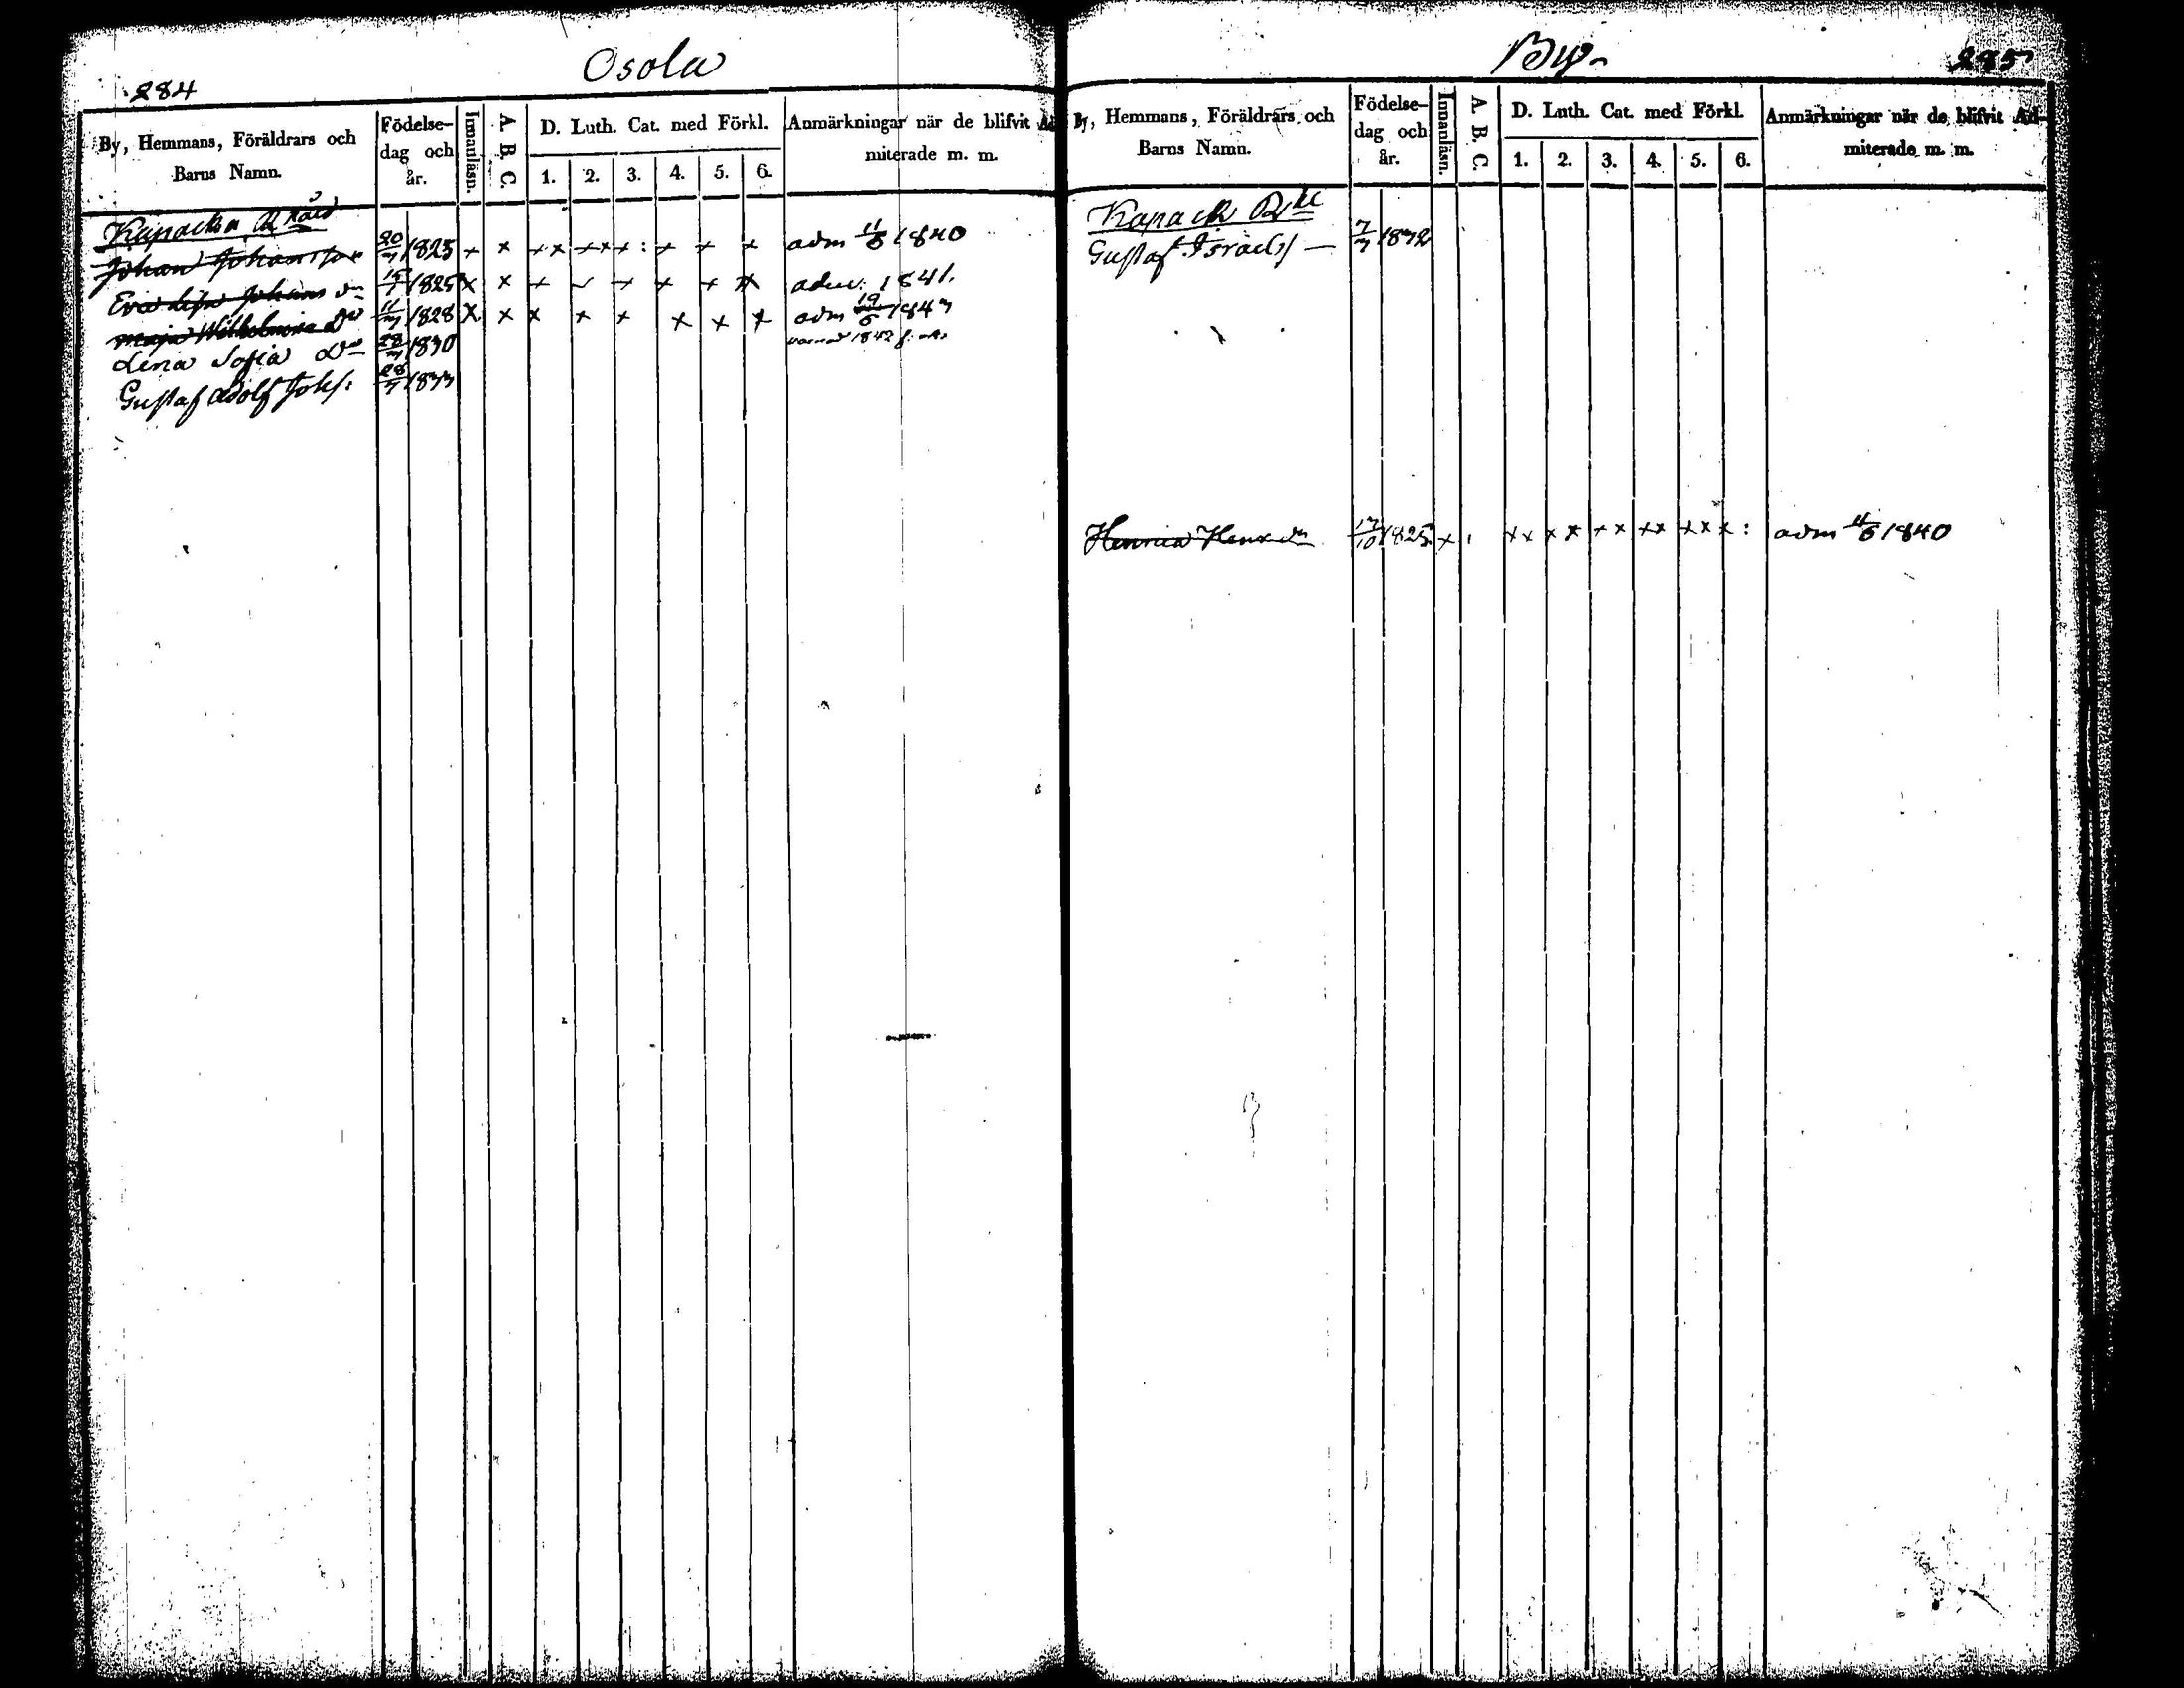 Osola
284
By, Hemmans, Föräldrars och Barns Namn.
Födelse-dag och år.
Innanläsn.
A. B. C.
D. Luth. Cat. med Förkl.
1. 2. 3. 4. 5. 6.
Anmärkningar när de blifvit Ad-
miterade m. m.
Johan Johansson 20/7 1823 x x x x x x x : x x x adm 11/6 1840
Eva Lisa Johans dr 15/7 1825 x x x x x x x x 1841.
Maja Wilhelmina dr 11/7 1828 x x x x x x x x adm 19/6 1843
1842
Lena Sofia dr 28/7 1830
Gustaf Adolf Johs: 28/7 1833
By
285
By, Hemmans, Föräldrars och Barns Namn.
Födelse-dag och år.
Innanläsn.
A. B. C.
D. Luth. Cat. med Förkl.
1. 2. 3. 4. 5. 6.
Anmärkningar när de blifvit Ad-
miterade m. m.
Gustaf Israels — 7/7 1832
Henrica Henr dr 17/10 1825 x x x x x x x x x x x x : adm 11/6 1840